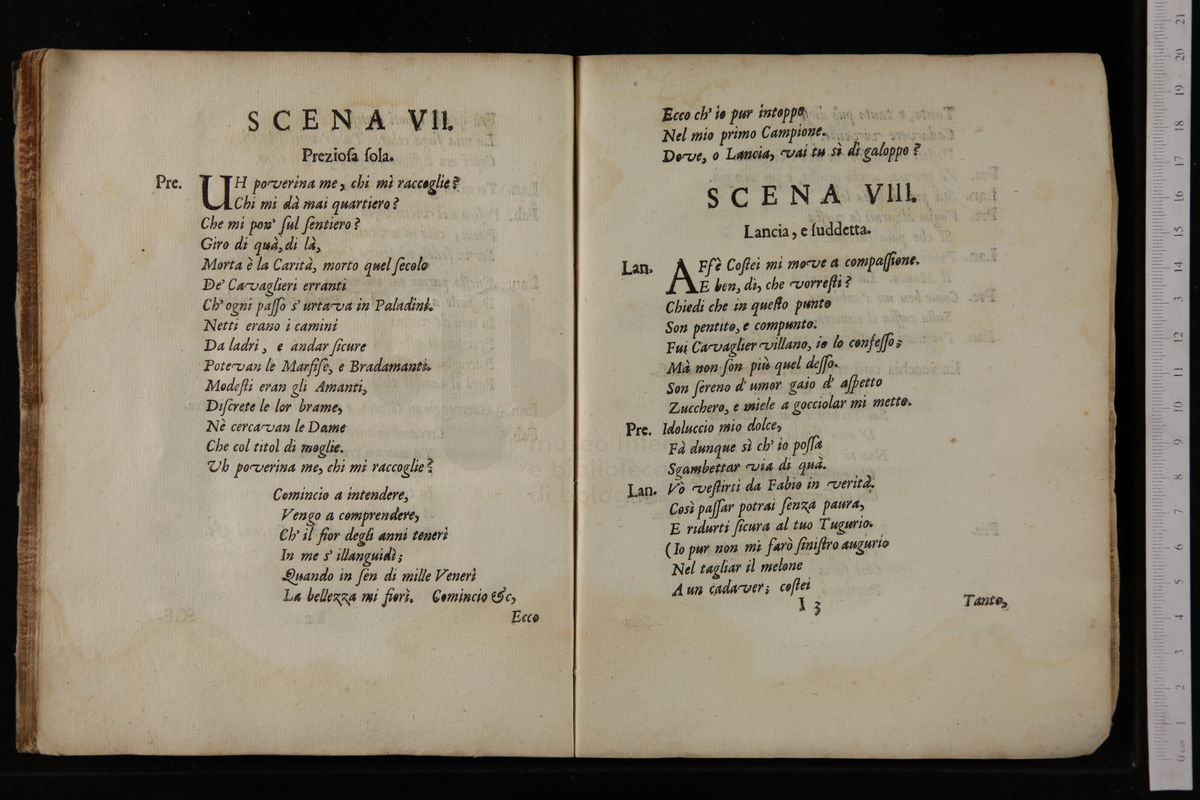 SCENA VII.
Preziosa sola.
Pre. UH poverina me, chi mi raccoglie?
Chi mi dà mai quartiero?
Che mi pon' sul sentiero?
Giro di quà, di là,
Morta è la Carità, morto quel secolo
De' Cavaglieri erranti
Ch' ogni passo s' urtava in Paladini.
Netti erano i camini
Da ladri, e andar sicure
Potevan le Marfise, e Bradamanti.
Modesti eran gli Amanti,
Discrete le lor brame,
Nè cercavan le Dame
Che col titol di moglie.
Uh poverina me, chi mi raccoglie?
Comincio a intendere,
Vengo a comprendere,
Ch' il fior degli anni teneri
In me s' illanguidì;
Quando in sen di mille Veneri
La bellezza mi fiorì. Comincio &c,
Ecco
Ecco ch' io pur intoppo
Nel mio primo Campione.
Dove, o Lancia, vai tu sì di galoppo?
SCENA VIII.
Lancia, e suddetta.
Lan. AFfè Costei mi move a compassione.
E ben, dì, che vorresti?
Chiedi che in questo punto
Son pentito, e compunto.
Fui Cavaglier villano, io lo confesso;
Mà non son più quel desso.
Son sereno d' umor gaio d' aspetto
Zucchero, e miele a gocciolar mi metto.
Pre. Idoluccio mio dolce,
Fà dunque sì ch' io possa
Sgambettar via di quà.
Lan. Vò vestirti da Fabio in verità.
Così passar potrai senza paura,
E ridurti sicura al tuo Tugurio.
(Io pur non mi farò sinistro augurio
Nel tagliar il melone
A un cadaver; costei
I 3
Tanto,